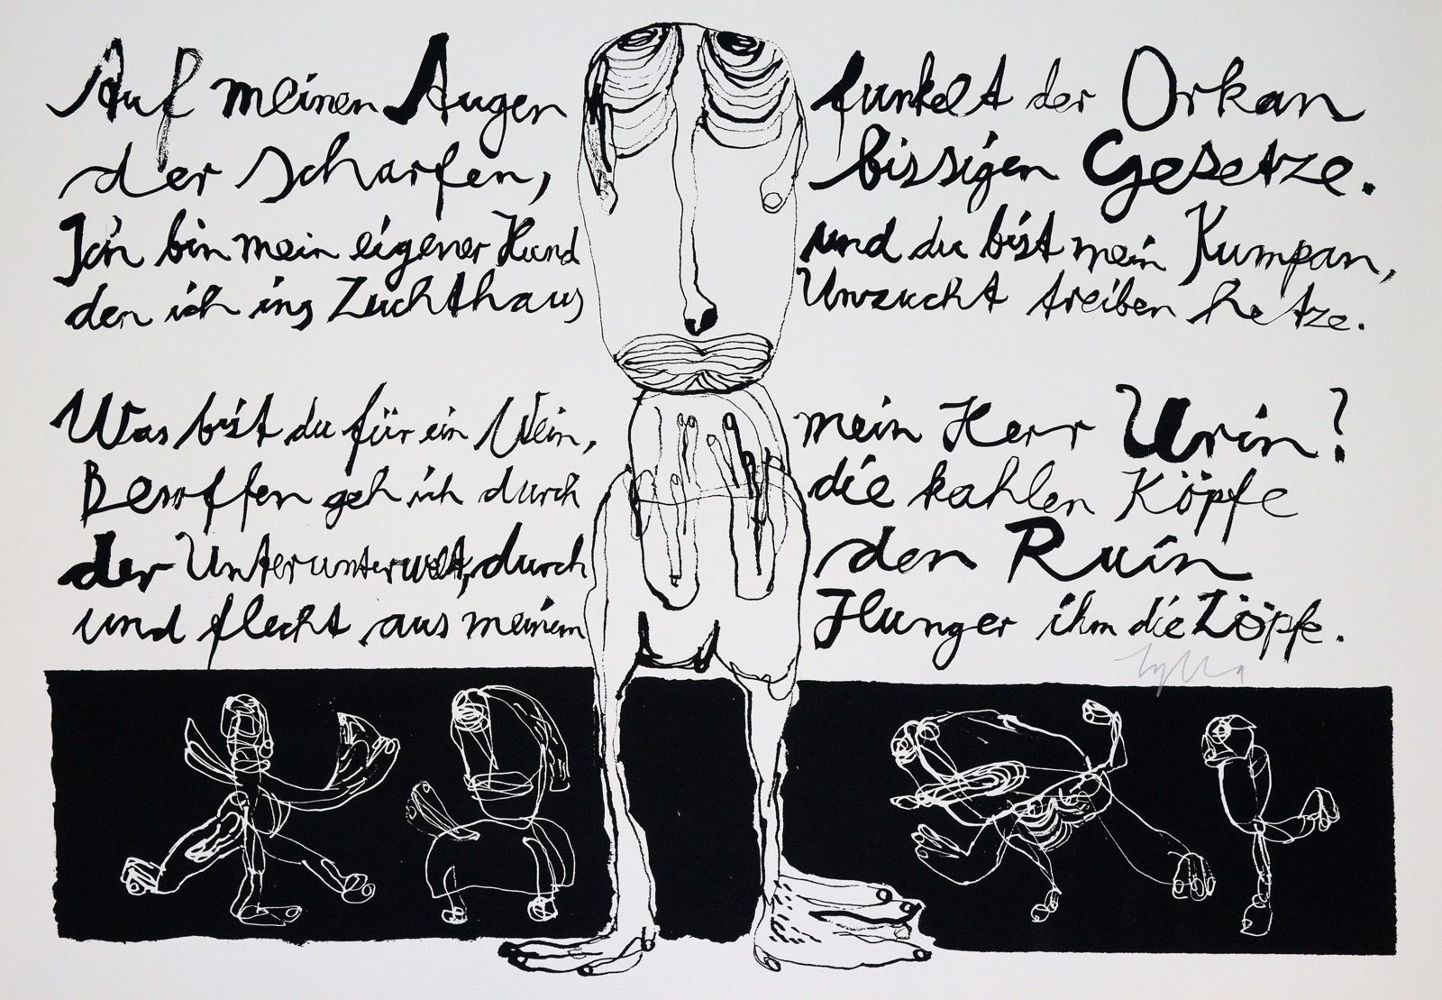 Auf meinen Augen funkelt der Orkan
der scharfen, bissigen Gesetze.
Ich bin mein eigener Hund und du bist mein Kumpan,
den ich ins Zuchthaus Unzucht treiben hetze.
Was bist du für ein Wein, mein Herr Urin?
Besoffen geh ich durch die kahlen Köpfe
der Unterunterwelt, durch den Ruin
und flecht aus meinem Hunger ihm die Zöpfe.